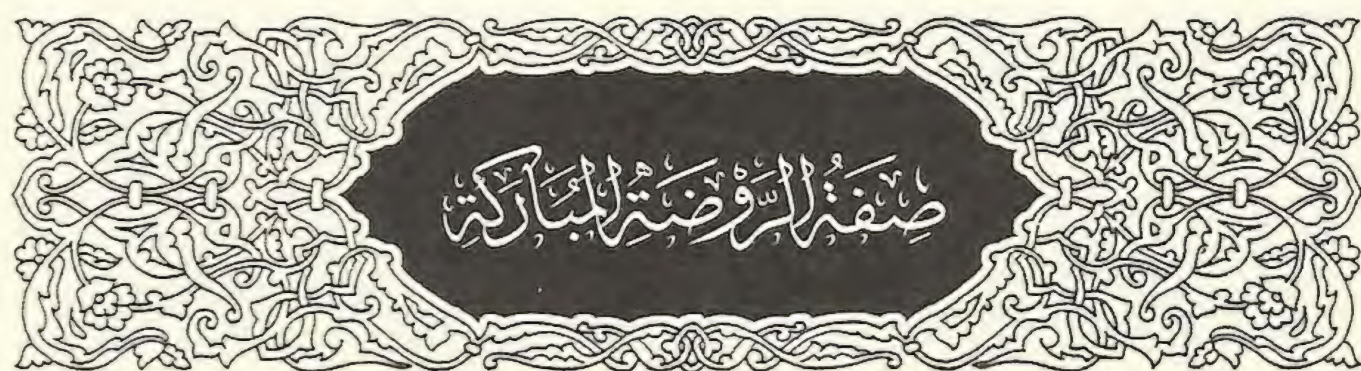 صِفَةُ الرَّوْضَةِ المُبَارَكَةِ